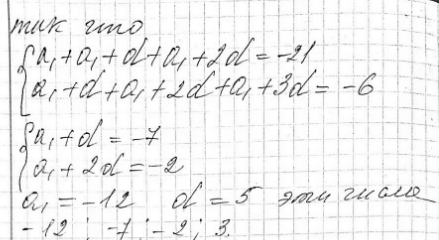 так что
{a₁+a₁+d+a₁+2d=-21
{a₁+d+a₁+2d+a₁+3d=-6
{a₁+d=-7
{a₁+2d=-2
a₁=-12 d=5 эти числа
-12; -7; -2; 3.